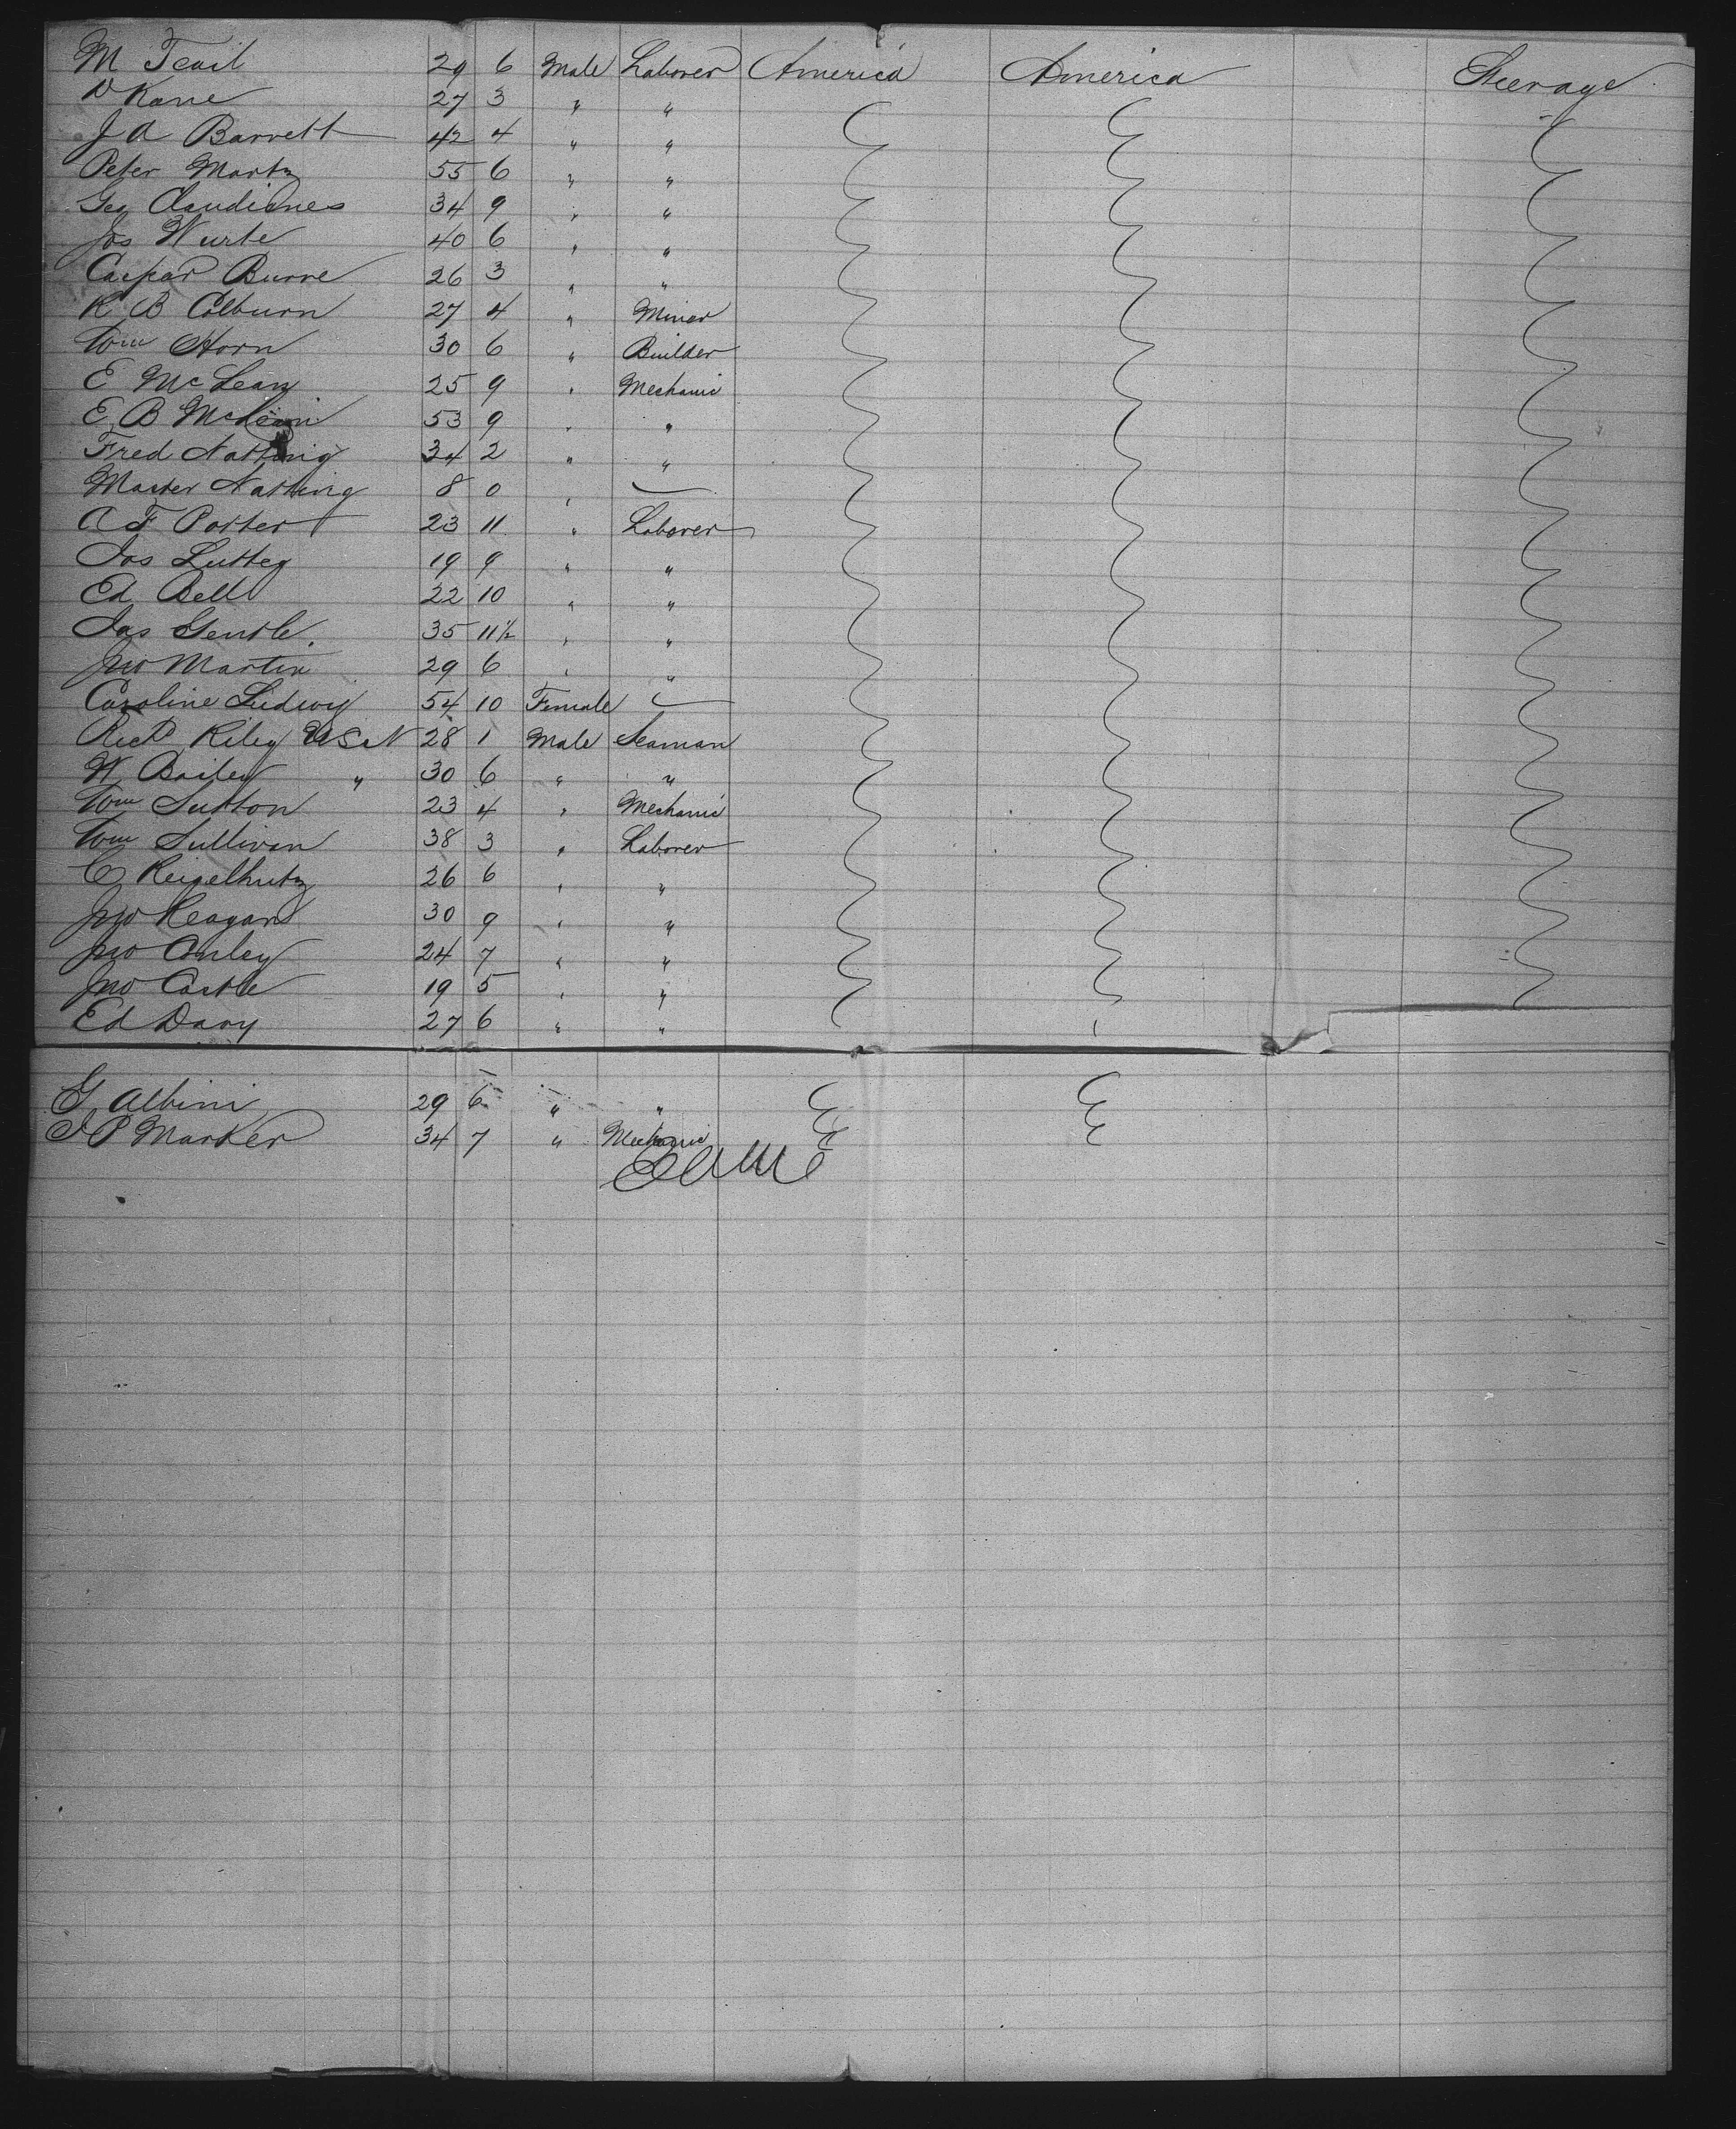 M Teail 29 6 Male Laborer America America Steerage
D Kane 27 3 " "
J A Barrett 42 4 " "
Peter Martz 55 6 " "
Geo 34 9 " "
Jos Wurte 40 6 " "
Caspar Burre 26 3 " "
R B Colburn 27 4 " Miner
Wm Horn 30 6 " Builder
E McLean 25 9 " Mechanic
E B 53 9 " "
Fred Natting 34 2 " "
Master Natting 8 0 "
A F Porter 23 11 " Laborer
Jos Lutteg 19 9 " "
Ed Bell 22 10 " "
Jas Gentle 35 11½ " "
Jno Martin 29 6 " "
Caroline Ludwig 54 10 Female
Richd Riley USN 28 1 Male Seaman
W Bailey " 30 6 " "
Wm Sutton 23 4 " Mechanic
Wm Sullivan 38 3 " Laborer
C 26 6 " "
Jno Reagan 30 9 " "
Jno Conley 24 7 " "
Jno Castle 19 5 " "
Ed Davy 27 6 " "
G Albini 29 6 " "
J P Marker 34 7 " Mechanic